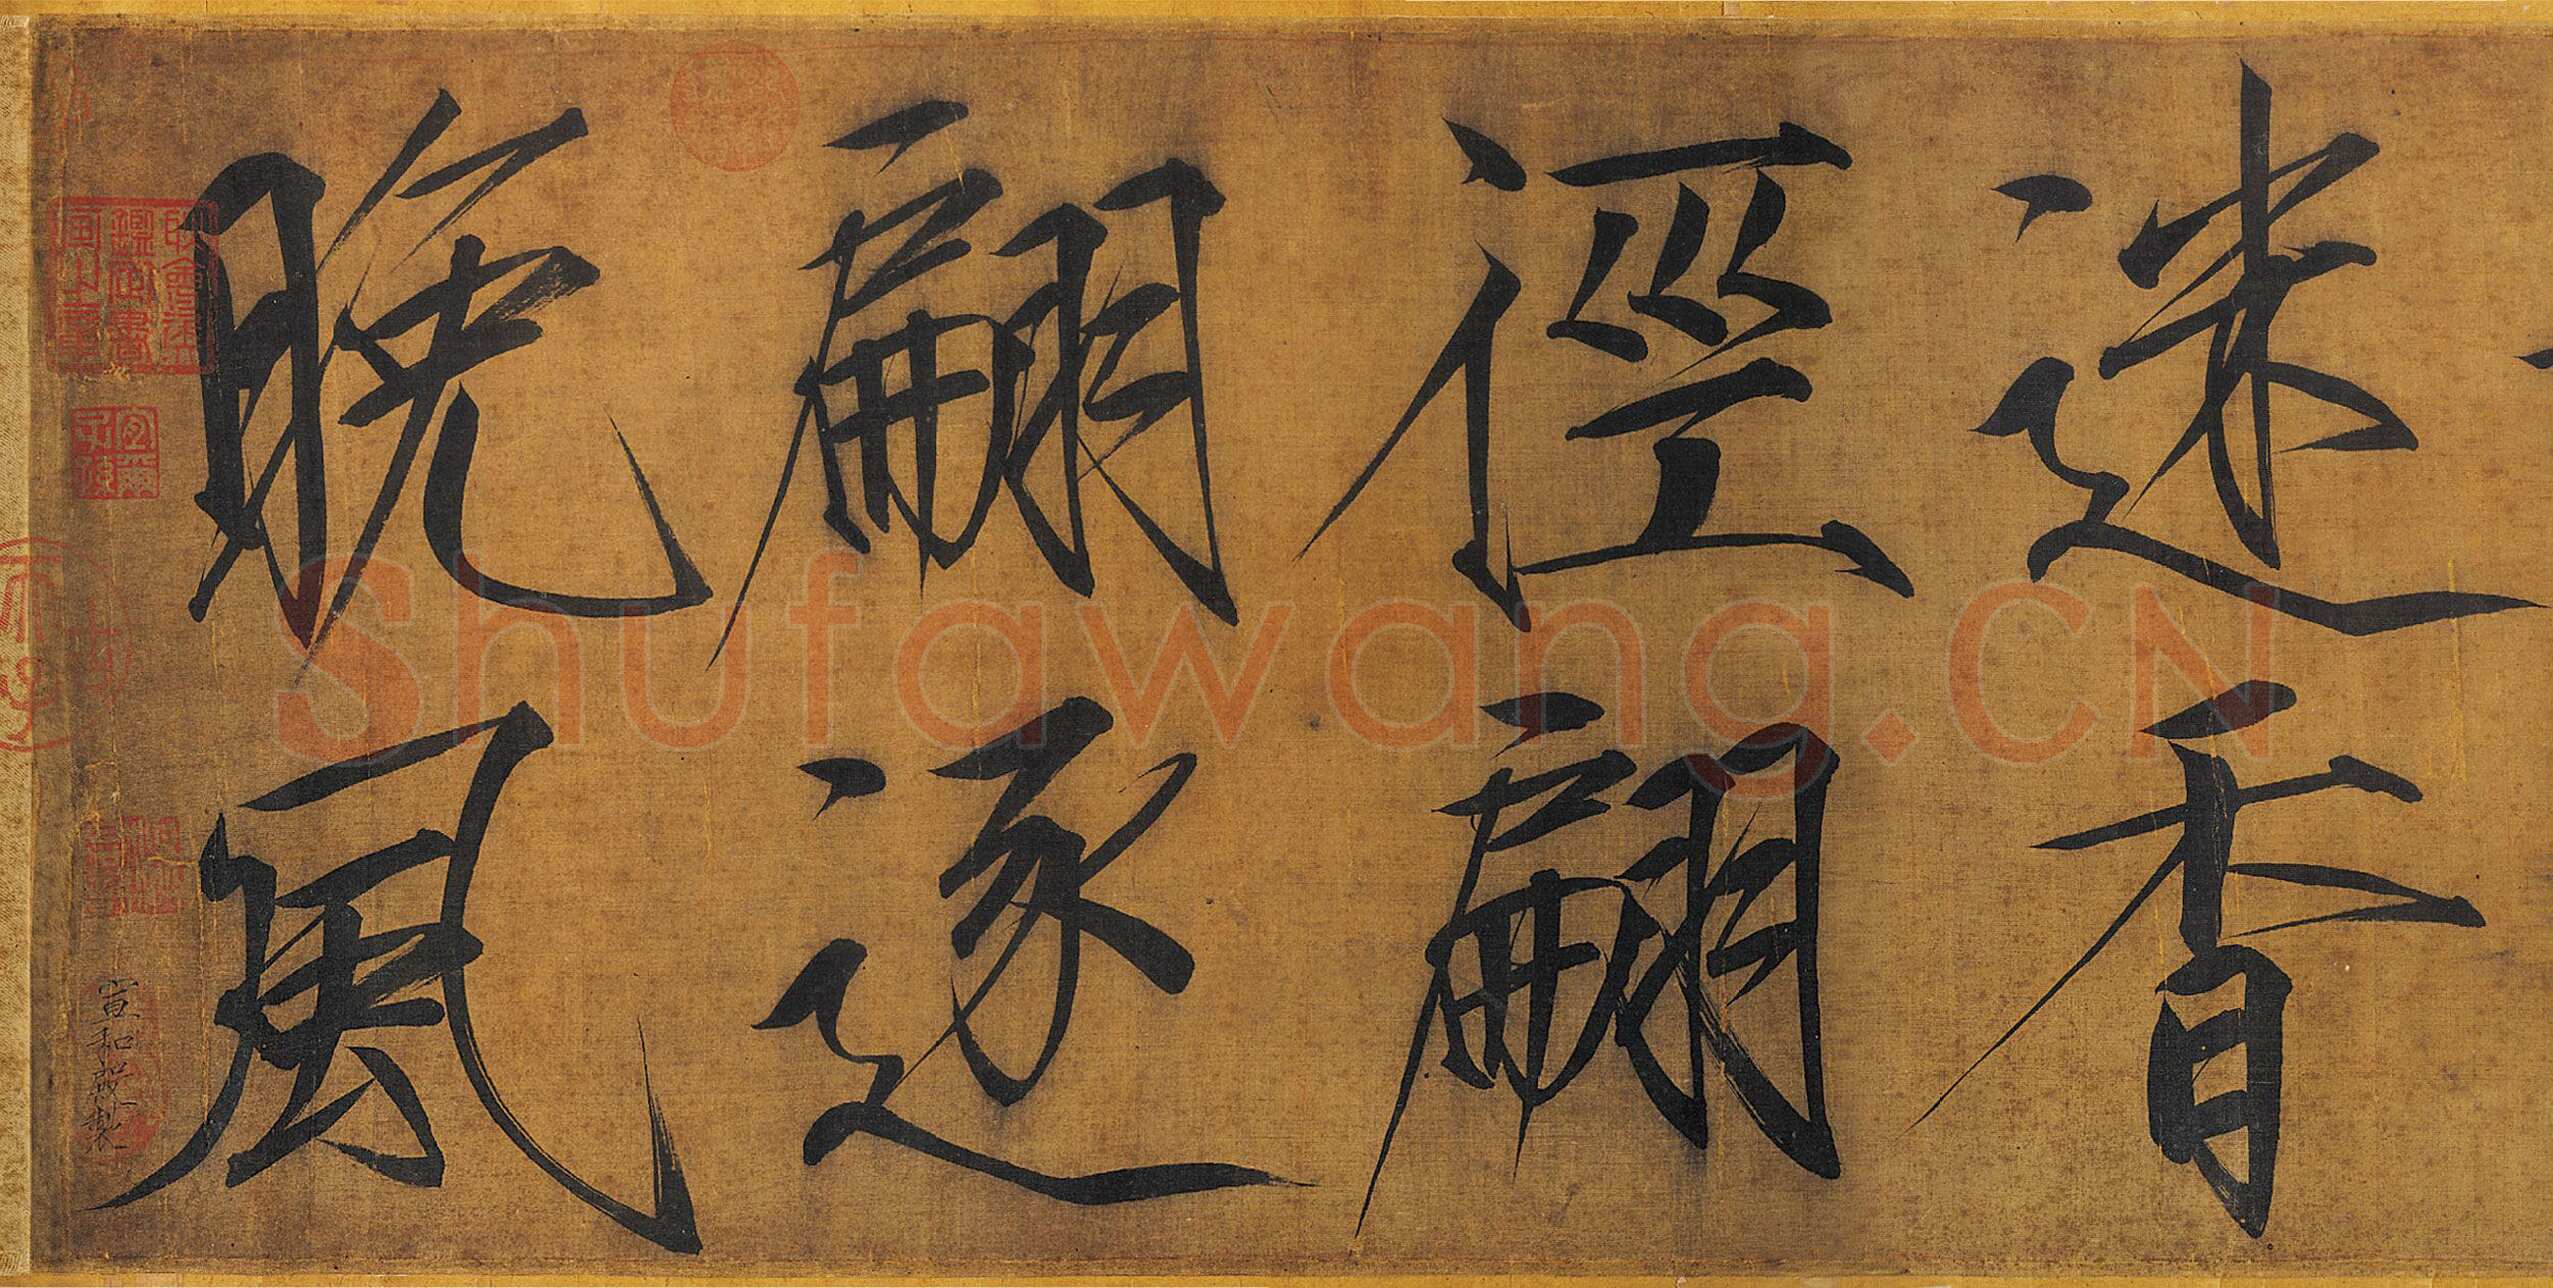 迷香
徑翩
翩逐
晚風
宣和殿製
宜爾
子孫
Shufawang.CN